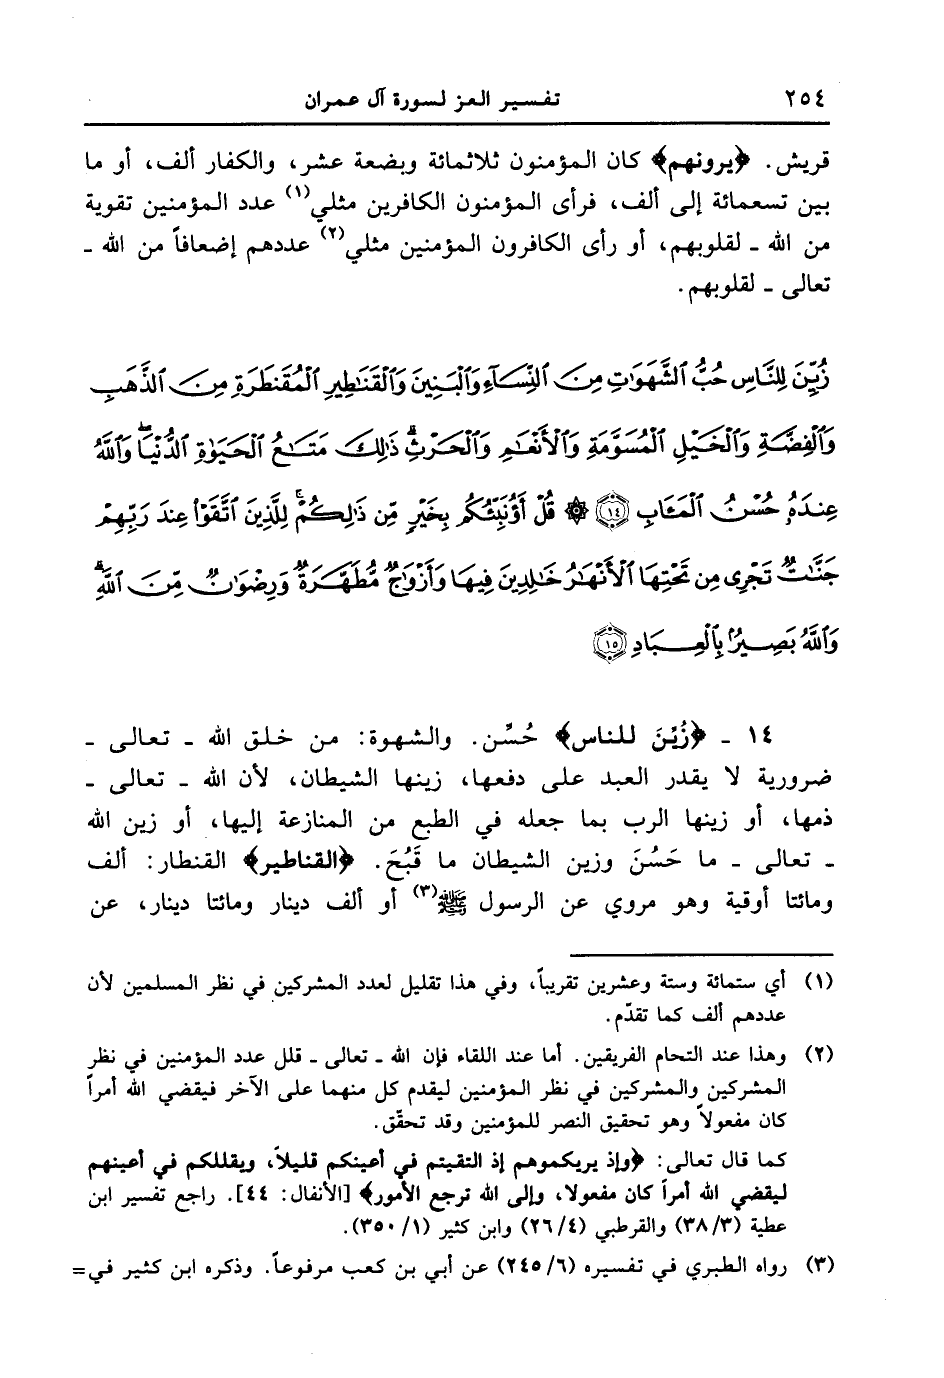 ٢٥٤ تفسير العز لسورة آل عمران
قريش. ﴿يرونهم﴾ كان المؤمنون ثلاثمائة وبضعة عشر، والكفار ألف، أو ما
بين تسعمائة إلى ألف، فرأى المؤمنون الكافرين مثلي(١) عدد المؤمنين تقوية
من الله ـ لقلوبهم، أو رأى الكافرون المؤمنين مثلي(٢) عددهم إضعافاً من الله ـ
تعالى ـ لقلوبهم.
زُيِّنَ لِلنَّاسِ حُبُّ ٱلشَّهَوَٰتِ مِنَ ٱلنِّسَآءِ وَٱلْبَنِينَ وَٱلْقَنَٰطِيرِ ٱلْمُقَنطَرَةِ مِنَ ٱلذَّهَبِ
وَٱلْفِضَّةِ وَٱلْخَيْلِ ٱلْمُسَوَّمَةِ وَٱلْأَنْعَٰمِ وَٱلْحَرْثِۗ ذَٰلِكَ مَتَٰعُ ٱلْحَيَوٰةِ ٱلدُّنْيَاۖ وَٱللَّهُ
عِندَهُۥ حُسْنُ ٱلْمَـَٔابِ ﴿١٤﴾ ۞ قُلْ أَؤُنَبِّئُكُم بِخَيْرٍ مِّن ذَٰلِكُمْۚ لِلَّذِينَ ٱتَّقَوْا۟ عِندَ رَبِّهِمْ
جَنَّٰتٌ تَجْرِى مِن تَحْتِهَا ٱلْأَنْهَٰرُ خَٰلِدِينَ فِيهَا وَأَزْوَٰجٌ مُّطَهَّرَةٌ وَرِضْوَٰنٌ مِّنَ ٱللَّهِۗ
وَٱللَّهُ بَصِيرٌۢ بِٱلْعِبَادِ ﴿١٥﴾
١٤ ـ ﴿زُيِّنَ للناس﴾ حُسِّن. والشهوة: من خلق الله ـ تعالى ـ
ضرورية لا يقدر العبد على دفعها، زينها الشيطان، لأن الله ـ تعالى ـ
ذمها، أو زينها الرب بما جعله في الطبع من المنازعة إليها، أو زين الله
ـ تعالى ـ ما حَسُنَ وزين الشيطان ما قَبُحَ. ﴿القناطير﴾ القنطار: ألف
ومائتا أوقية وهو مروي عن الرسول ﷺ(٣) أو ألف دينار ومائتا دينار، عن
(١) أي ستمائة وستة وعشرين تقريباً، وفي هذا تقليل لعدد المشركين في نظر المسلمين لأن
عددهم ألف كما تقدّم.
(٢) وهذا عند التحام الفريقين. أما عند اللقاء فإن الله ـ تعالى ـ قلل عدد المؤمنين في نظر
المشركين والمشركين في نظر المؤمنين ليقدم كل منهما على الآخر فيقضي الله أمراً
كان مفعولاً وهو تحقيق النصر للمؤمنين وقد تحقّق.
كما قال تعالى: ﴿وإذ يريكموهم إذ التقيتم في أعينكم قليلاً، ويقللكم في أعينهم
ليقضي الله أمراً كان مفعولا، وإلى الله ترجع الأمور﴾ [الأنفال: ٤٤]. راجع تفسير ابن
عطية (٣٨/٣) والقرطبي (٢٦/٤) وابن كثير (٣٥٠/١).
(٣) رواه الطبري في تفسيره (٢٤٥/٦) عن أبي بن كعب مرفوعاً. وذكره ابن كثير في=